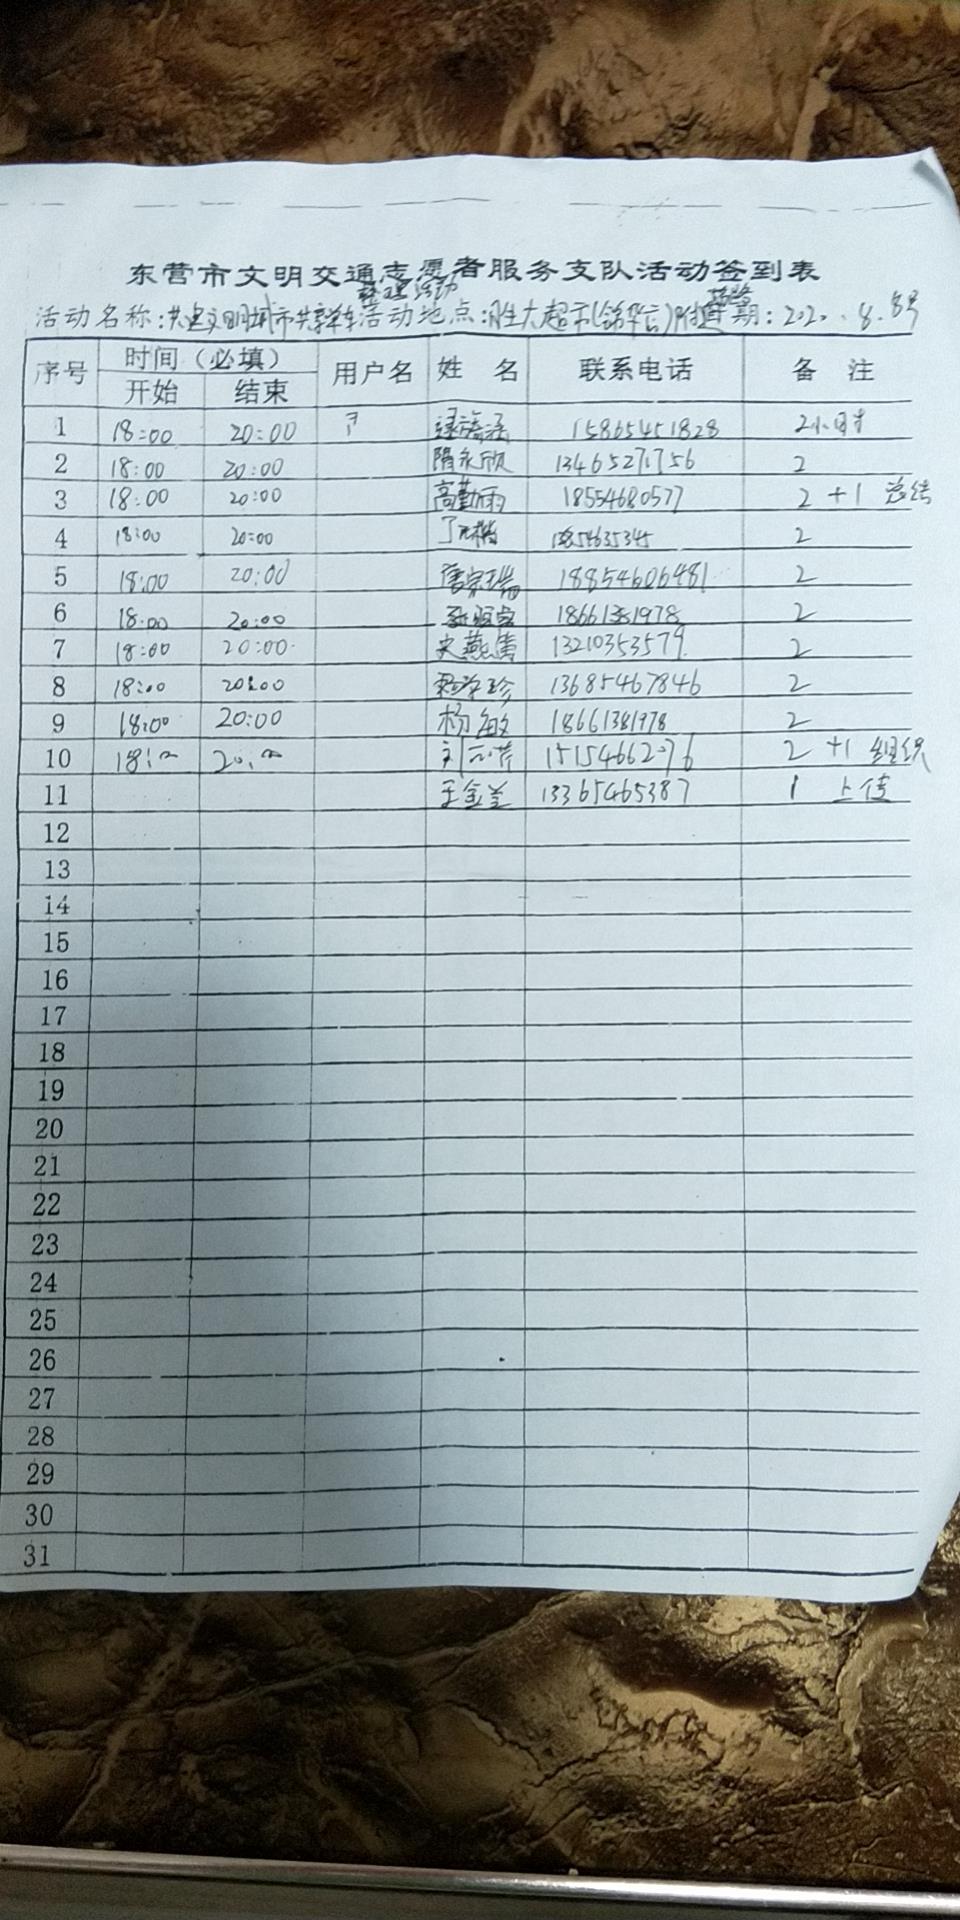 东营市文明交通志愿者服务支队活动签到表
整理活动
活动名称:共建文明城市共享单车活动地点:胜大超市(锦华店)附近 日期:2020.8.8号
序号 时间(必填) 用户名 姓 名 联系电话 备 注
开始 结束
1 18:00 20:00 15865451828 2小时
2 18:00 20:00 隋永欣 13465271756 2
3 18:00 20:00 高勤雨 18554680577 2 +1 总结
4 18:00 20:00 2
5 18:00 20:00 18854606481 2
6 18:00 20:00 18661381978 2
7 18:00 20:00 史燕倩 13210353579 2
8 18:00 20:00 13685467846 2
9 18:00 20:00 杨敏 18661381978 2
10 18:00 20:00 15154662076 2 +1 组织
11 王金兰 13365465387 1 上传
12
13
14
15
16
17
18
19
20
21
22
23
24
25
26
27
28
29
30
31